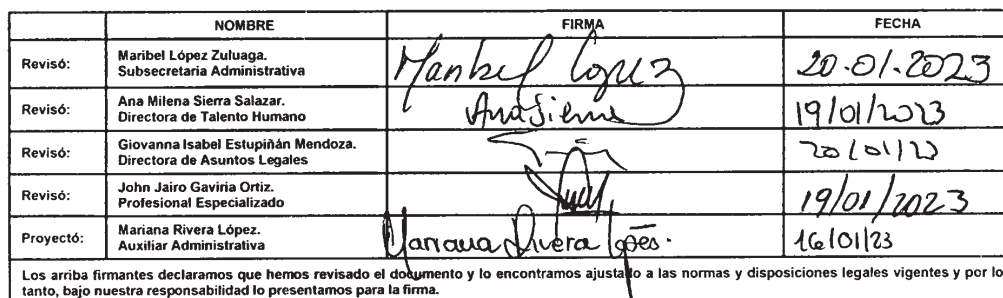 NOMBRE FIRMA FECHA
Revisó: Maribel López Zuluaga.
Subsecretaria Administrativa
Maribel López 20-01-2023
Revisó: Ana Milena Sierra Salazar.
Directora de Talento Humano
Ana Sierra 19/01/2023
Revisó: Giovanna Isabel Estupiñán Mendoza.
Directora de Asuntos Legales
20/01/23
Revisó: John Jairo Gaviria Ortiz.
Profesional Especializado
19/01/2023
Proyectó: Mariana Rivera López.
Auxiliar Administrativa
Mariana Rivera López. 16/01/23
Los arriba firmantes declaramos que hemos revisado el documento y lo encontramos ajustado a las normas y disposiciones legales vigentes y por lo
tanto, bajo nuestra responsabilidad lo presentamos para la firma.